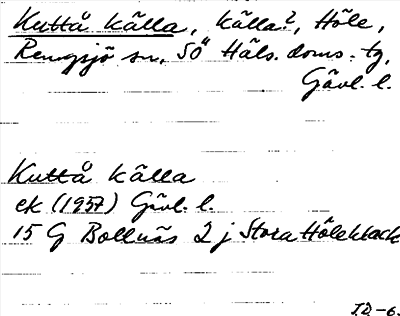 Kuttå källa, källa?, Höle,
Rengsjö sn, SÖ Häls. doms. tg,
Gävl. l.
Kuttå källa
ek (1957) Gävl. l.
15 G Bollnäs 2 j Stora Hölehtack
I.D.-6